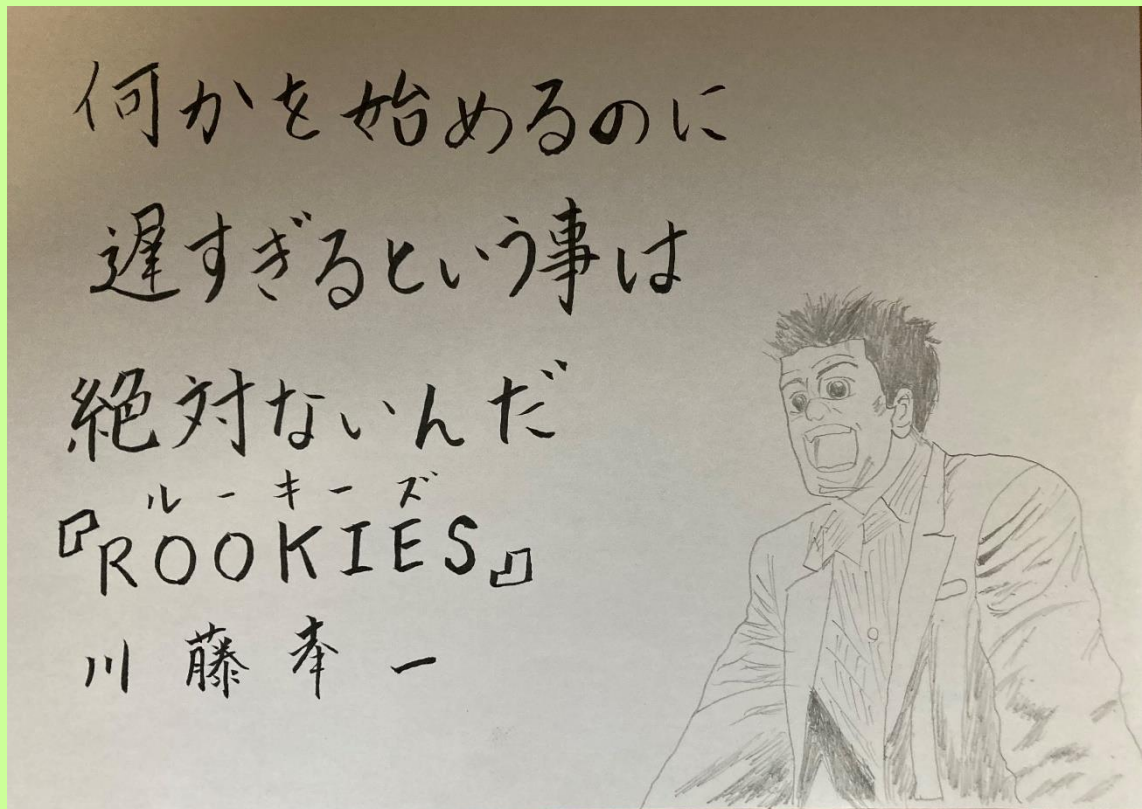 何かを始めるのに
遅すぎるという事は
絶対ないんだ
ルーキーズ
『ROOKIES』
川藤幸一